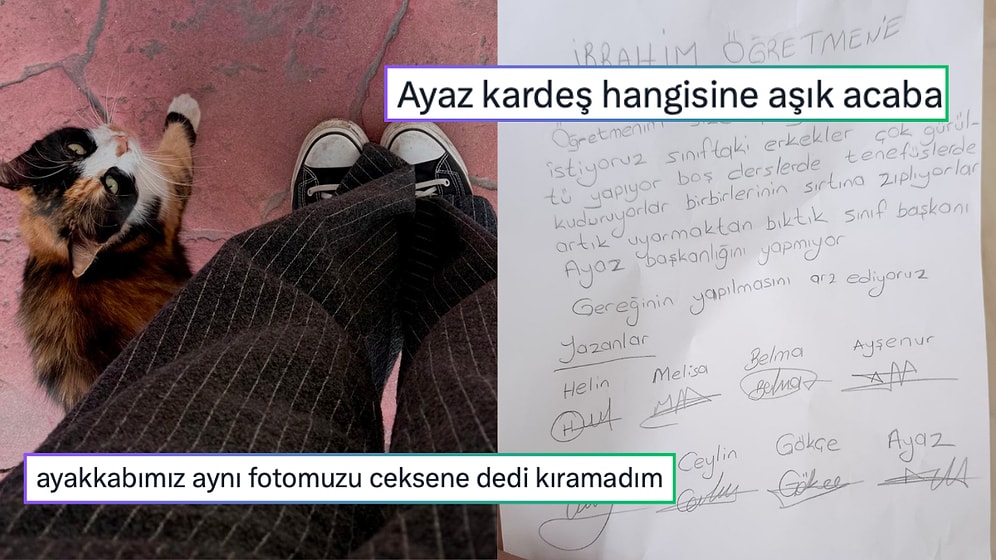 Ayaz kardeş hangisine aşık acaba
ayakkabımız aynı fotomuzu ceksene dedi kıramadım
İBRAHİM ÖĞRETMENE
Öğretmenim
istiyoruz sınıftaki erkekler çok gürül-
tü yapıyor boş derslerde tenefüslerde
kuduruyorlar birbirlerinin sırtına zıplıyorlar
artık uyarmaktan bıktık sınıf başkanı
Ayaz başkanlığını yapmıyor
Gereğinin yapılmasını arz ediyoruz
Yazanlar
Helin Melisa Belma Ayşenur
Belma
Ceylin Gökçe Ayaz
Gökçe